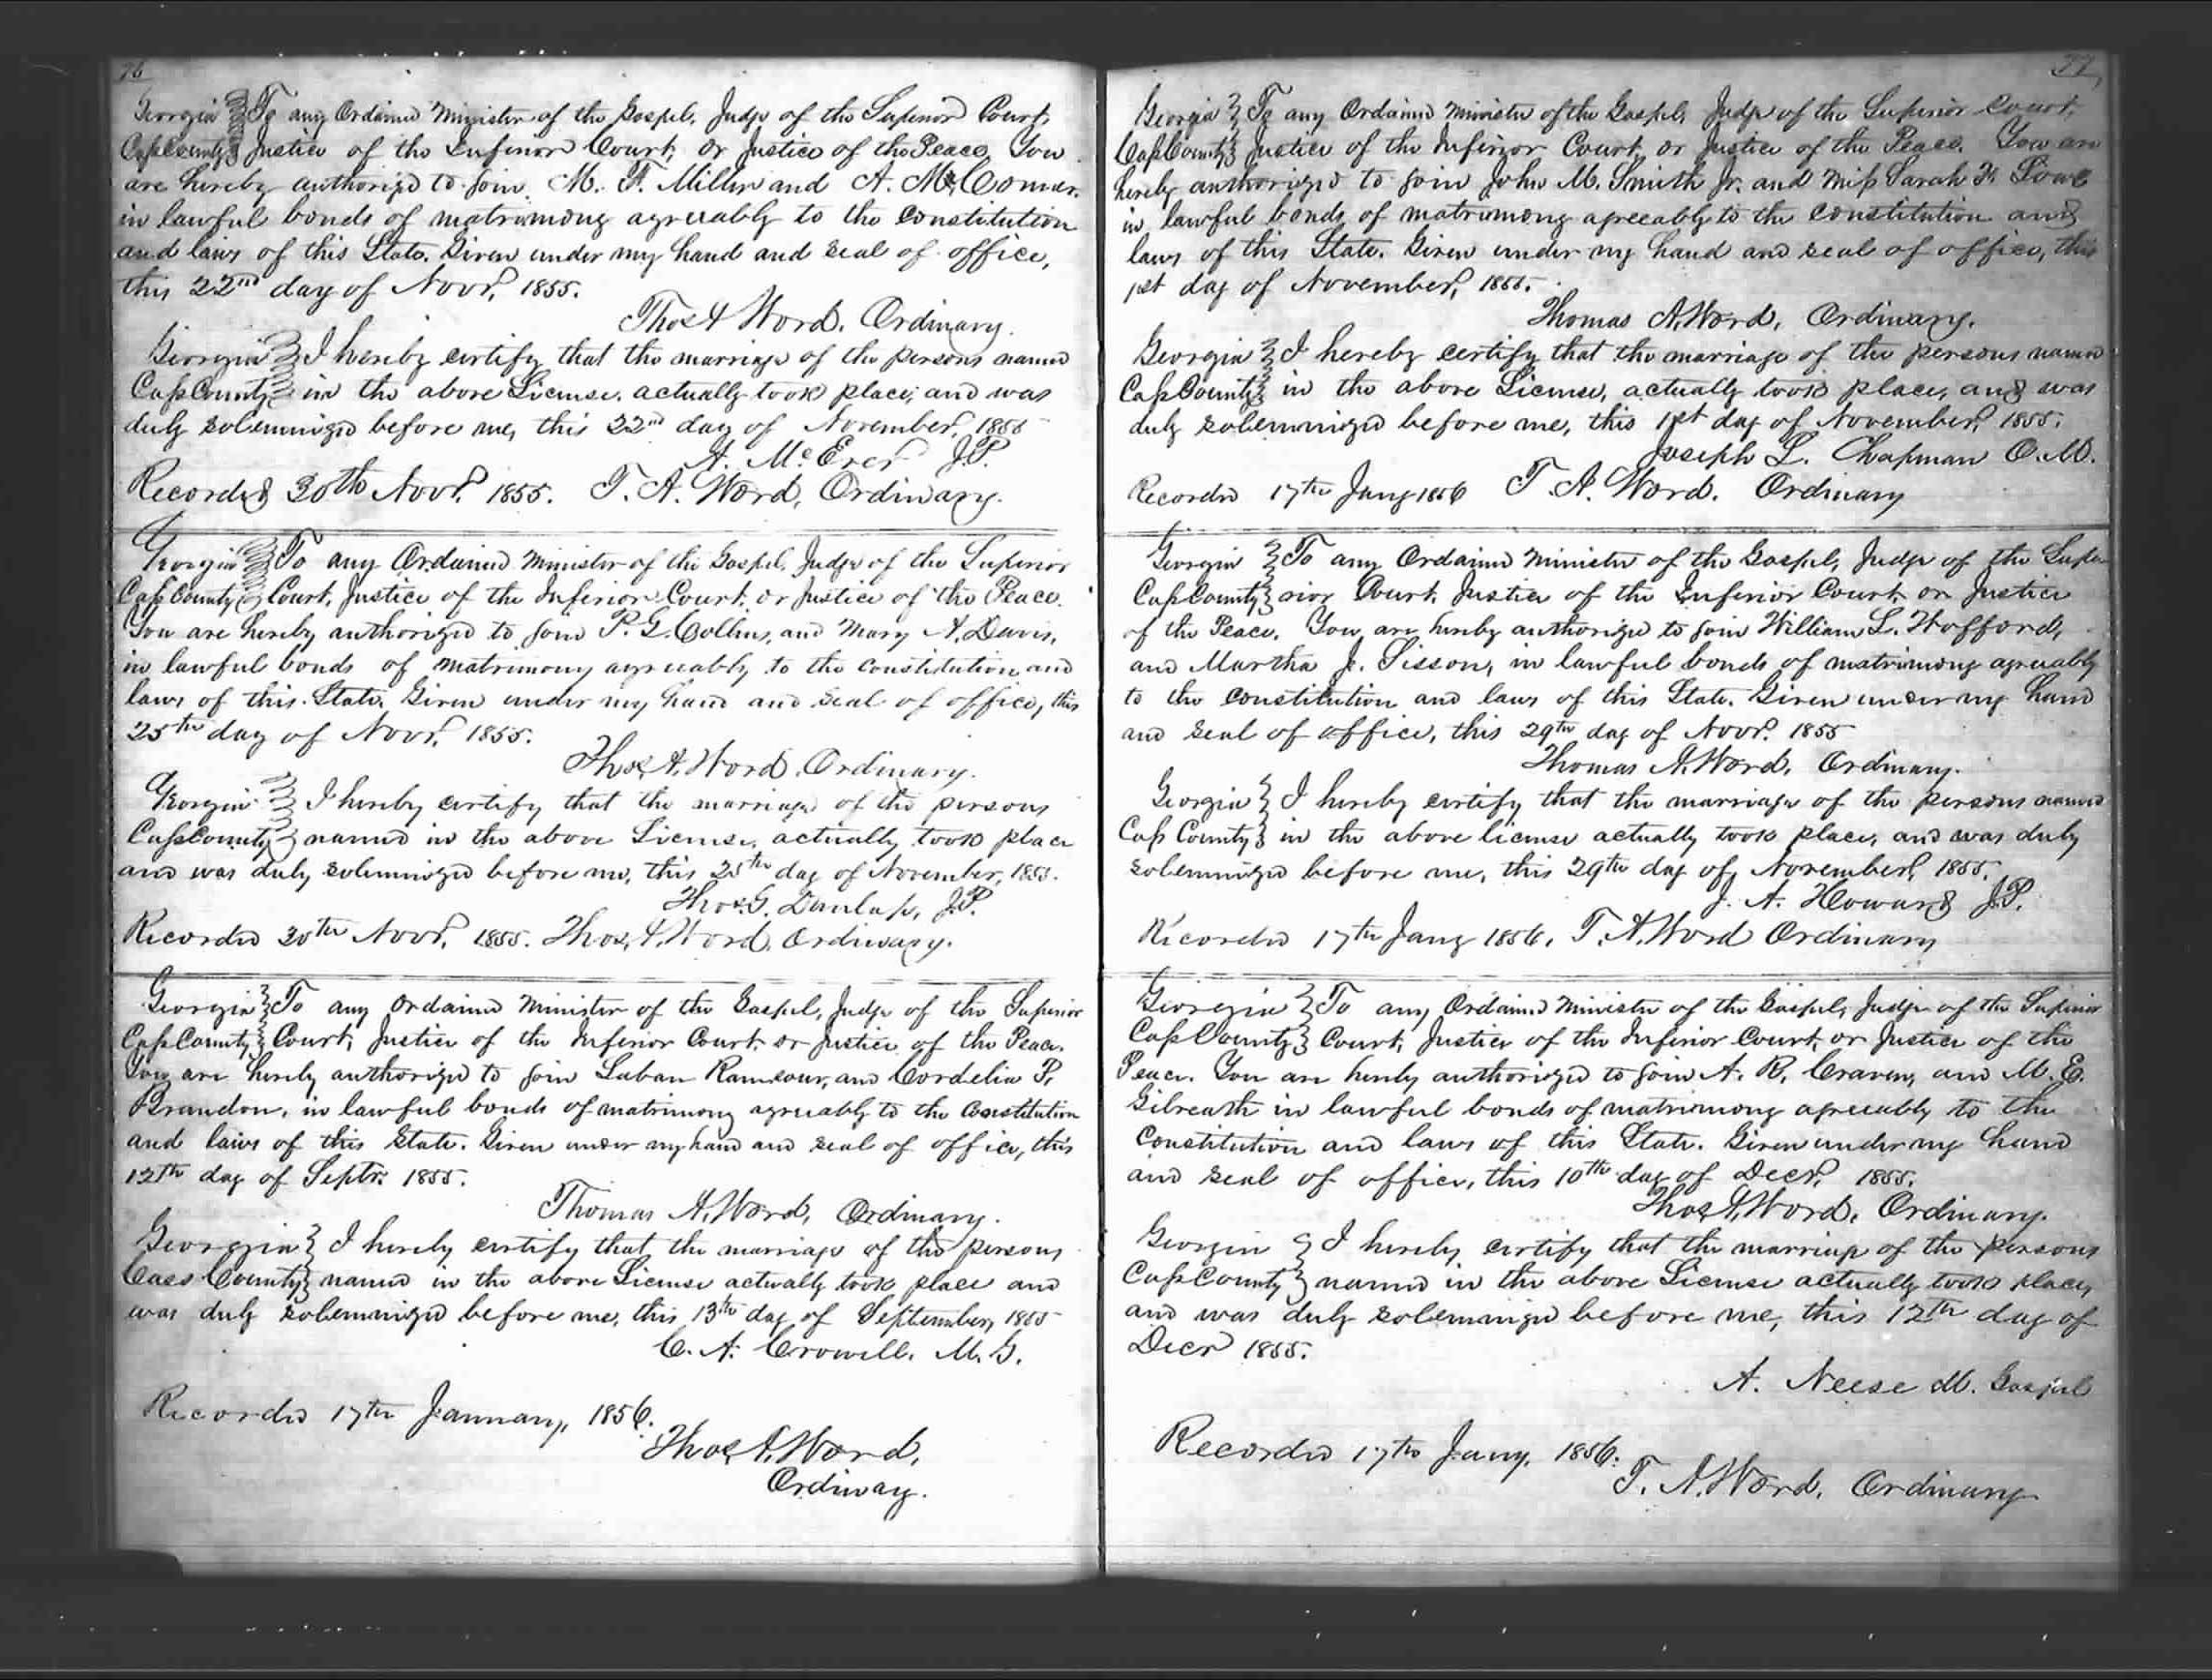 76
Georgia } To any Ordained Minister of the Gospel, Judge of the Superior Court,
Cass County } Justice of the Inferior Court, or Justice of the Peace. You
are hereby authorized to join M. F. Miller and A. M. Comer.
in lawful bonds of matrimony agreeably to the constitution
and laws of this State. Given under my hand and seal of office,
this 22nd day of Novr, 1855.
Thos A Word. Ordinary.
Georgia } I hereby certify that the marriage of the persons named
Cass County } in the above License, actually took place, and was
duly solemnized before me, this 22nd day of November, 1855
A. McEver J.P.
Recorded 30th Novr, 1855. T. A. Word, Ordinary.
Georgia } To any Ordained Minister of the Gospel, Judge of the Superior
Cass County } Court, Justice of the Inferior Court, or Justice of the Peace.
You are hereby authorized to join P. G. Collins, and Mary A. Davis,
in lawful bonds of matrimony agreeably to the constitution and
laws of this State. Given under my hand and seal of office, this
25th day of Novr, 1855.
Thos. A. Word. Ordinary.
Georgia } I hereby certify that the marriage of the persons
Cass County } named in the above License, actually took place
and was duly solemnized before me, this 25th day of November, 1855.
Thos. G. Dunlap, J.P.
Recorded 30th Novr, 1855. Thos. A. Word, Ordinary.
Georgia } To any Ordained Minister of the Gospel, Judge of the Superior
Cass County } Court, Justice of the Inferior Court, or Justice of the Peace.
You are hereby authorized to join Laban Ramsour, and Cordelia P.
Brandon, in lawful bonds of matrimony agreeably to the Constitution
and laws of this State. Given under my hand and seal of office, this
12th day of Septr. 1855.
Thomas A. Word, Ordinary.
Georgia } I hereby certify that the marriage of the persons
Cass County } named in the above License actually took place and
was duly solemnized before me, this 13th day of September, 1855
C. A. Crowell. M. G.
Recorded 17th January, 1856.
Thos A. Word,
Ordinary.
77
Georgia } To any Ordained Minister of the Gospel, Judge of the Superior Court,
Cass County } Justice of the Inferior Court, or Justice of the Peace. You are
hereby authorized to join John M. Smith Jr. and Miss Sarah F. Lowe
in lawful bonds of matrimony agreeably to the constitution and
laws of this State. Given under my hand and seal of office, this
1st day of November, 1855.
Thomas A. Word, Ordinary.
Georgia } I hereby certify that the marriage of the persons named
Cass County } in the above License, actually took place, and was
duly solemnized before me, this 1st day of November, 1855.
Joseph L. Chapman O.M.
Recorded 17th Jany 1856 T. A. Word. Ordinary
Georgia } To any Ordained Minister of the Gospel, Judge of the Supe-
Cass County } rior Court, Justice of the Inferior Court, or Justice
of the Peace. You are hereby authorized to join William L. Wofford,
and Martha J. Sisson, in lawful bonds of matrimony agreeably
to the constitution and laws of this State. Given under my hand
and seal of office, this 29th day of Novr. 1855
Thomas A. Word, Ordinary.
Georgia } I hereby certify that the marriage of the persons named
Cass County } in the above license actually took place, and was duly
solemnized before me, this 29th day of November, 1855.
J. A. Howard J.P.
Recorded 17th Jany 1856. T. A. Word Ordinary
Georgia } To any Ordained Minister of the Gospel, Judge of the Superior
Cass County } Court, Justice of the Inferior Court, or Justice of the
Peace. You are hereby authorized to join A. R. Craven, and M. E.
Gilreath in lawful bonds of matrimony agreeably to the
Constitution and laws of this State. Given under my hand
and seal of office, this 10th day of Decr, 1855.
Thos A. Word. Ordinary.
Georgia } I hereby certify that the marriage of the persons
Cass County } named in the above License actually took place,
and was duly solemnized before me, this 12th day of
Decr 1855.
A. Neese M. Gospel
Recorded 17th Jany, 1856.
T. A. Word, Ordinary